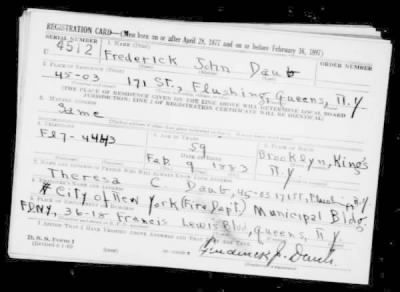 REGISTRATION CARD—(Men born on or after April 28, 1877 and on or before February 16, 1897)
SERIAL NUMBER 1. NAME (Print) ORDER NUMBER
U 4512 Frederick John Daub
(First) (Middle) (Last)
2. PLACE OF RESIDENCE (Print)
45-03 171 St., Flushing, Queens, N.Y
(THE PLACE OF RESIDENCE GIVEN ON THE LINE ABOVE WILL DETERMINE LOCAL BOARD
JURISDICTION; LINE 2 OF REGISTRATION CERTIFICATE WILL BE IDENTICAL)
3. MAILING ADDRESS
Same
4. TELEPHONE
Fl 7-4443 59 Brooklyn, Kings
DATE OF BIRTH
Feb. 9 1883 N.Y
7. NAME AND ADDRESS OF PERSON WHO WILL ALWAYS KNOW YOUR ADDRESS
Theresa C Daub, 45-03 171 St, Flush, N.Y
8. EMPLOYER'S NAME AND ADDRESS
City of New York (Fire Dept) Municipal Bldg.
9. PLACE OF EMPLOYMENT OR BUSINESS
FDNY, 36-18 Francis Lewis Blvd, Queens, N.Y
I AFFIRM THAT I HAVE VERIFIED ABOVE ANSWERS AND THAT THEY ARE TRUE.
D. S. S. Form 1
Frederick J. Daub